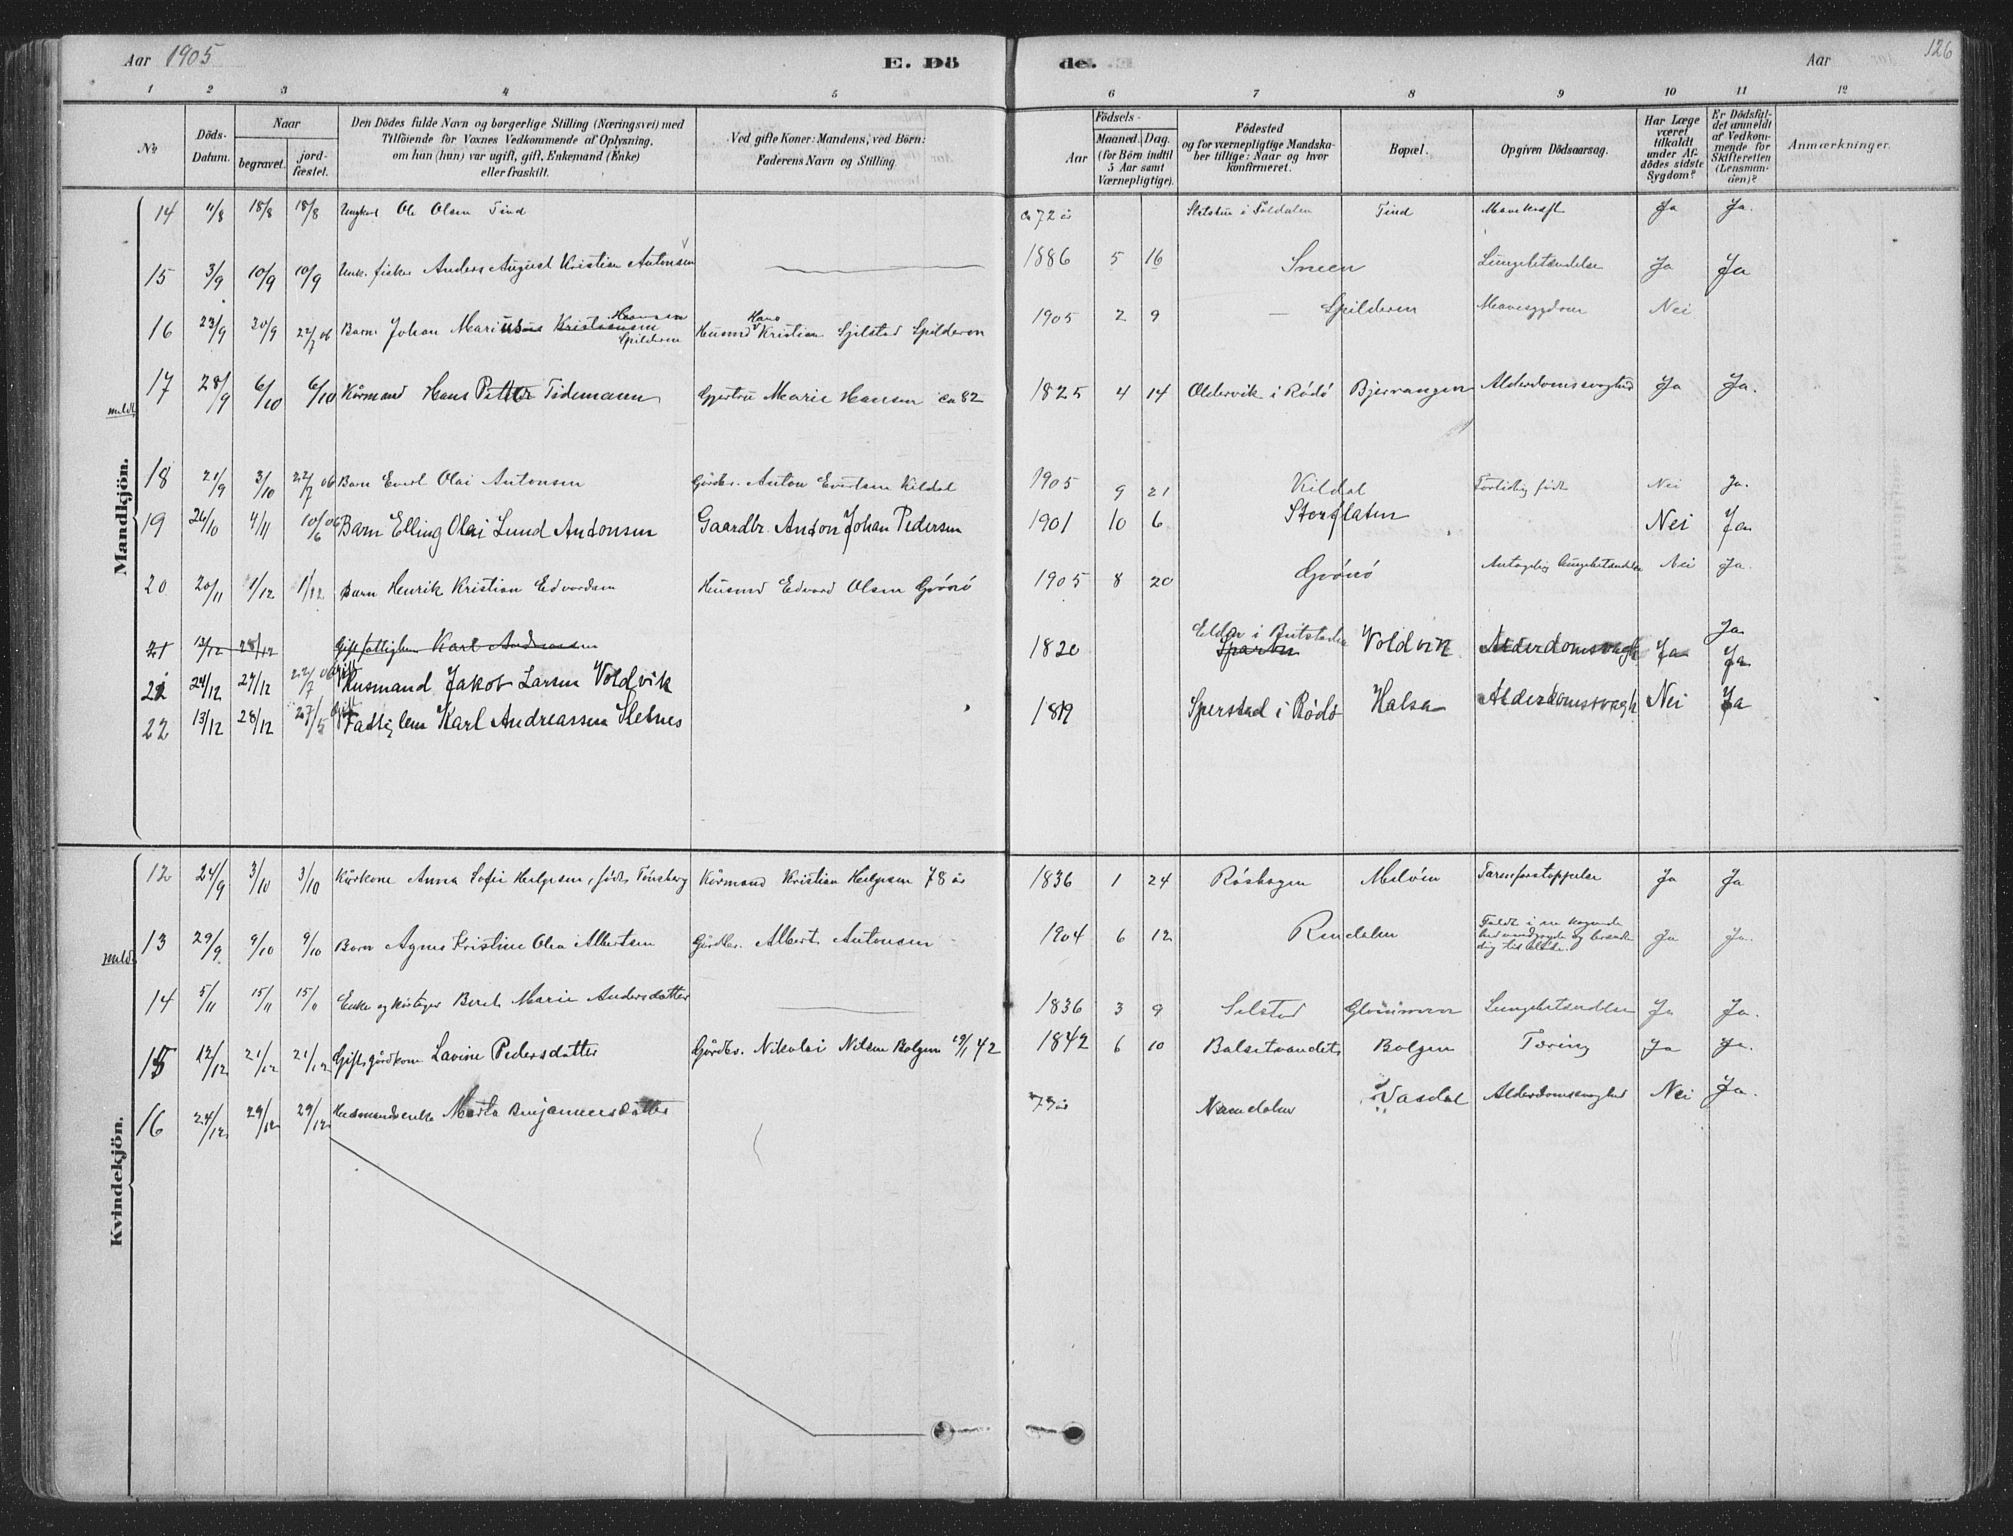 Aar 1905
E. Dö
de.
Aar
126
1 2 3 4 5 6 7 8 9 10 11 12
No.
Döds-
Datum.
Naar
begravet.
jord-
fæstet.
Den Dödes fulde Navn og borgerlige Stilling (Næringsvei) med
Tilföiende for Voxnes Vedkommende af Oplysning,
om han (hun) var ugift, gift, Enkemand (Enke)
eller fraskilt.
Ved gifte Koner: Mandens, ved Börn:
Faderens Navn og Stilling
Födsels-
Aar
Maaned.
Dag.
(for Börn indtil
5 Aar samt
Værnepligtige).
Födested
og for værnepligtige Mandska-
ber tillige: Naar og hvor
konfirmeret.
Bopæl.
Opgiven Dödsaarsag.
Har Læge
været
tilkaldt
under Af-
dödes sidste
Sygdom?
Er Dödsfal-
det anmeldt
af Vedkom-
mende for
Skifteretten
(Lensman-
den)?
Anmærkninger.
Mandkjön.
14 11/8 18/8 18/8 Ungkarl Ole Olsen Tind ca 72 år Tind Mavekræft Ja Ja.
15 3/9 10/9 10/9 Unk. fisker Anders August Kristian Antonsen 1886 5 16 Sneen Lungebetændelse Ja Ja
16 23/9 30/9 22/7 06 Barn Johan Marius Kristiansen Hansen Spilderen Husmd Hans Kristian Spilderen 1905 2 9 Spilderen Mavesygdom Nei
17 28/9 6/10 6/10 Kårmand Hans Petter Tidemann Gjertru Marie Hansen ca 82 1825 4 14 Oldervik i Rödö Bjerrangen Alderdomssvaghed Ja Ja.
meldt
18 21/9 3/10 22/7 06 Barn Evert Olai Antonsen Gårdbr. Anton Evertsen Kildal 1905 9 21 Kildal Fortidlig født Nei Ja.
19 26/10 4/11 10/6 06 Barn Elling Olai Lund Antonsen Gaardbr. Anton Johan Pedersen 1901 10 6 Storflaten Nei Ja
20 20/11 1/12 1/12 Barn Henrik Kristian Edvardsen Husmd Edvard Olsen Grönö 1905 8 20 Grönö Antagelig lungebetændelse Nei Ja.
21 13/12 28/12 Gift fattiglem Karl Andreassen Ja
21 24/12 27/12 22/7 06 Gift Husmand Jakob Larsen Voldvik 1820 Voldvik Alderdomssvagh Ja Ja
22 13/12 28/12 27/5 Gift Fattiglem Karl Andreassen Sletnes 1819 Sperstad i Rödö Halsa Alderdomssvagh Nei Ja
Kvindekjön.
12 24/9 3/10 3/10 Kårkone Anna Sofie Helgesen, födt Tönsberg Kårmand Kristian Helgesen 78 år 1836 1 24 Röshagen Melöen Tarmforstoppelse Ja Ja
13 29/9 9/10 9/10 Barn Agnes Kristine Olea Albertsen Gårdbr. Albert Antonsen 1904 6 12 Rendalen Faldt i en kogende
vandgryde og brændte
sig til døde. Ja Ja.
meldt
14 5/11 15/11 15/11 Enke og kårtager Beret Marie Andersdatter 1836 3 9 Selstad Glommen Lungebetændelse Ja Ja.
15 12/12 21/12 21/12 Gift gårdkone Lavine Pedersdatter Gårdbr. Nikolai Nilsen Bolgen 19/1 42 1842 6 10 Bolgen Tæring Ja Ja.
16 24/12 29/12 29/12 Husmandsenke Marta Benjaminsdatter 79 år Namdalen Vasdal Alderdomssvaghed Nei Ja.